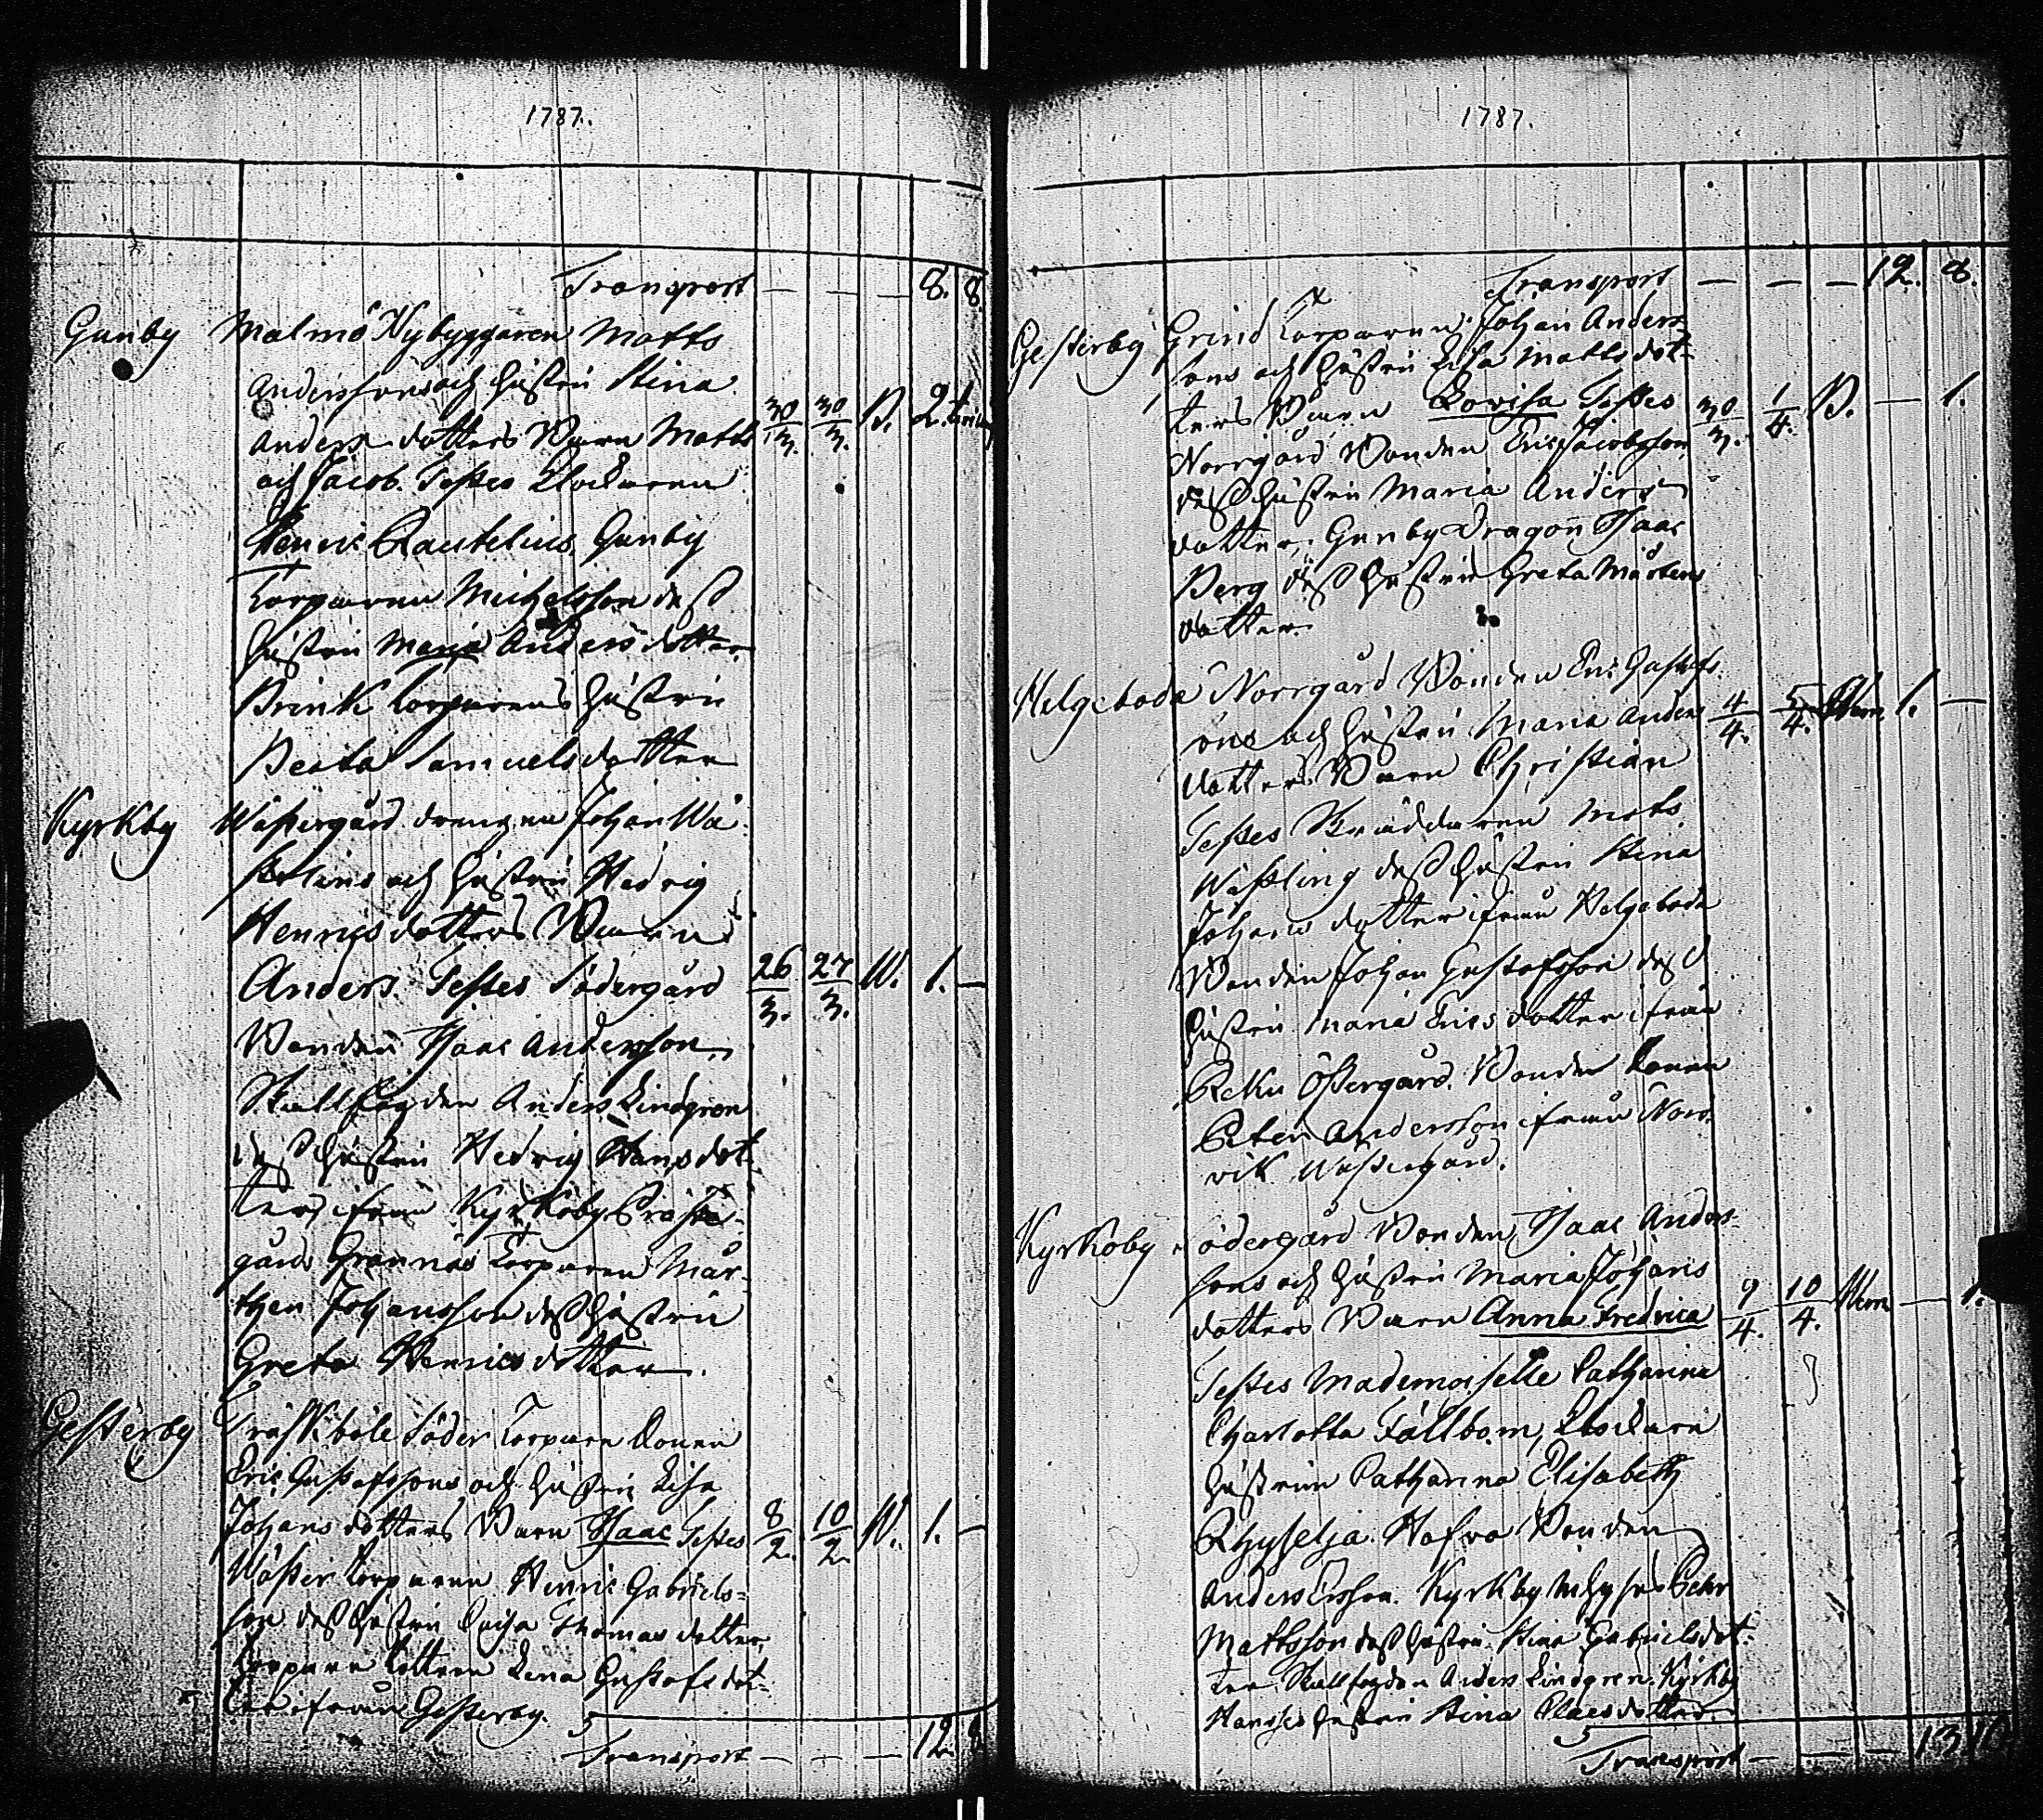 1787.
Transport — — — 8. 8.
Gunby Malmö Nybyggaren Matts
Anderssons och hustru Stina
Anders dotters Barn Matts 30/3. 30/3. B. 2.
och Jacob. Testes Klockaren
Henric Rautelius, Gunby
Torparen Michelsson dess
hustru Maria Anders dotter,
Brink Torparens hustru
Beata Samuelsdotter
Kyrkby Wästergård drengen Johan Wä-
sterlins och hustru Hedvig
Henrics dotters Barn
Anders. Testes Södergård 26/3. 27/3. W. 1. —
Bonden Isaac Andersson,
Skallfogden Anders Lindgren
dess hustru Hedvig Hans dot-
ter, ifrån Kyrkoby Preste-
gårds Grannäs Torparen Mår-
then Johansson dess hustru
Greta Henrics dotter.
Gesterby Träskböle Söder Torpare Sonen
Eric Gustafssons och hustru Lisa
Johans dotters Barn Isaac Testes 8/2. 10/2. W. 1. —
Wäster Torparen Henric Gabriels-
son dess hustru Caisa Thomas dotter,
Torpare dottern Lena Gustafs dot-
ter ifrån Gesterby.
Transport — — — 12. 8
1787.
Transport — — — 12. 8.
Gesterby Grind Torparen Johan Anders-
sons och hustru Lisa Matts dot-
ters Barn Lovisa Testes 30/3. 1/4. B. — 1.
Norrgård Bonden Eric Jacobsson
dess hustru Maria Anders
dotter, Gunby Dragon Isaac
Berg dess hustru Greta Mårtens
dotter.
Helgeboda Norrgård Bonden Eric Gustafs-
sons och hustru Maria Anders 4/4. 5/4. 1. —
dotters Barn Christian
Testes Skräddaren Mats
Wästling dess hustru Stina
Johans dotter ifrån Helgeboda
Bonden Johan Gustafsson dess
hustru Maria Erics dotter ifrån
Östergård. Bonde Sonen
Peter Andersson ifrån Norr-
vik Wästergård.
Kyrkoby Södergård Bonden Isaac Anders-
sons och hustru Maria Johans
dotters Barn Anna Fredrica 9/4. 10/4. — 1.
Testes Mademoiselle Catharina
Charlotta Fällbom, Klockare
hustrun Catharina Elisabeth
Hafva Bonden
Anders Ersson. Kyrkby Pehr
Mattsson dess hustru Stina Gabrielsdot-
ter Skallfogden Anders Lindgren. Kyrkby
hustru Stina Claesdotter.
Transport — — — 13. 10.